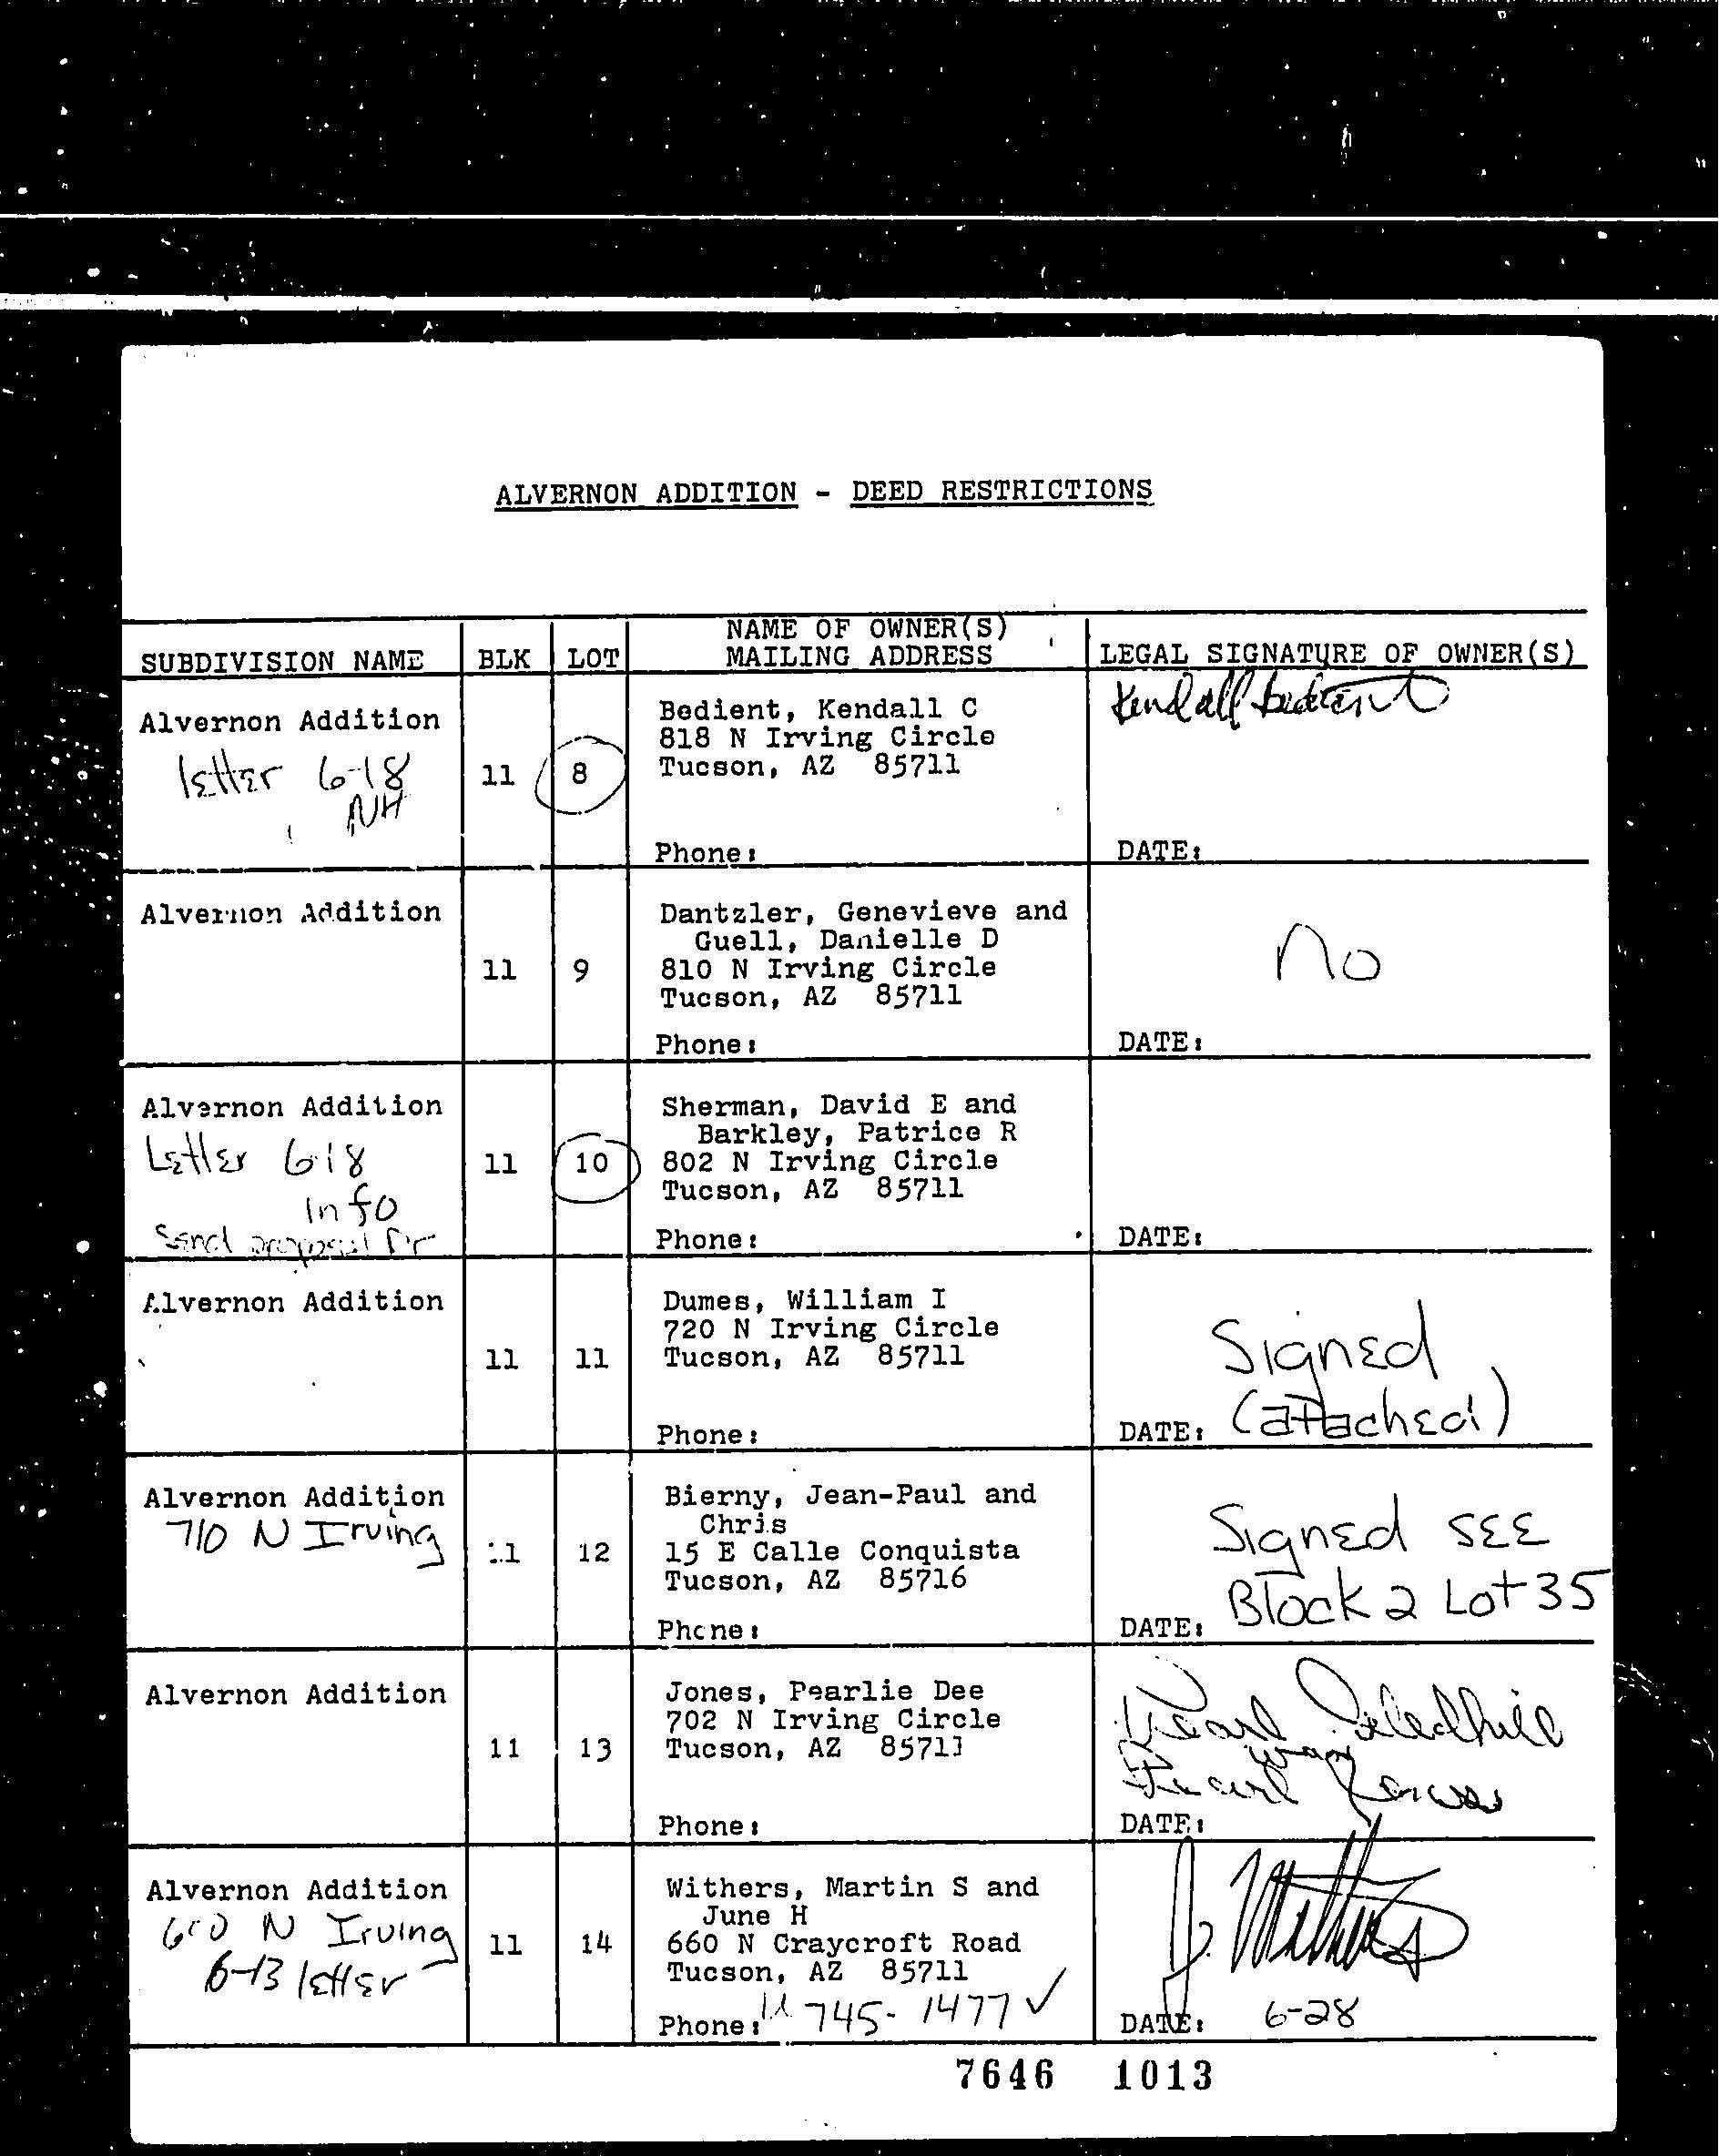 ALVERNON ADDITION - DEED RESTRICTIONS
SUBDIVISION NAME BLK LOT NAME OF OWNER(S) MAILING ADDRESS LEGAL SIGNATURE OF OWNER(S)
Alvernon Addition
letter 6-18
NH
11
8
Bedient, Kendall C
818 N Irving Circle
Tucson, AZ 85711
Phone:
Kendall Bedient
DATE:
Alvernon Addition
11
9
Dantzler, Genevieve and
Guell, Danielle D
810 N Irving Circle
Tucson, AZ 85711
Phone:
No
DATE:
Alvernon Addition
Letter 6-18
Info
Send proposal for
11
10
Sherman, David E and
Barkley, Patrice R
802 N Irving Circle
Tucson, AZ 85711
Phone:
DATE:
Alvernon Addition
11
11
Dumes, William I
720 N Irving Circle
Tucson, AZ 85711
Phone:
Signed
(attached)
DATE:
Alvernon Addition
710 N Irving
11
12
Bierny, Jean-Paul and
Chris
15 E Calle Conquista
Tucson, AZ 85716
Phone:
Signed SEE
Block 2 Lot 35
DATE:
Alvernon Addition
11
13
Jones, Pearlie Dee
702 N Irving Circle
Tucson, AZ 85711
Phone:
Pearl
Pearl
DATE:
Alvernon Addition
N Irving
6-13 letter
11
14
Withers, Martin S and
June H
660 N Craycroft Road
Tucson, AZ 85711
Phone: 745-1477 ✓
J. Withers
DATE: 6-28
7646 1013